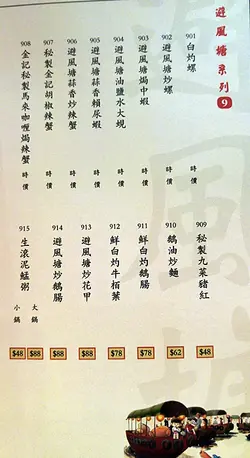 避風塘系列 9
901 白灼螺 時價
902 避風塘炒螺 時價
903 避風塘焗中蝦 時價
904 避風塘油鹽水大蜆 時價
905 避風塘蒜香賴尿蝦 時價
906 避風塘蒜香炒辣蟹 時價
907 秘製金記胡椒辣蟹 時價
908 金記秘製馬來咖喱焗辣蟹 時價
909 秘製九菜豬紅 $48
910 鵝油炒麵 $62
911 鮮白灼鵝腸 $78
912 鮮白灼牛栢葉 $78
913 避風塘炒花甲 $88
914 避風塘炒鵝腸 $88
915 生滾泥鯭粥 大鍋 $88
小鍋 $48